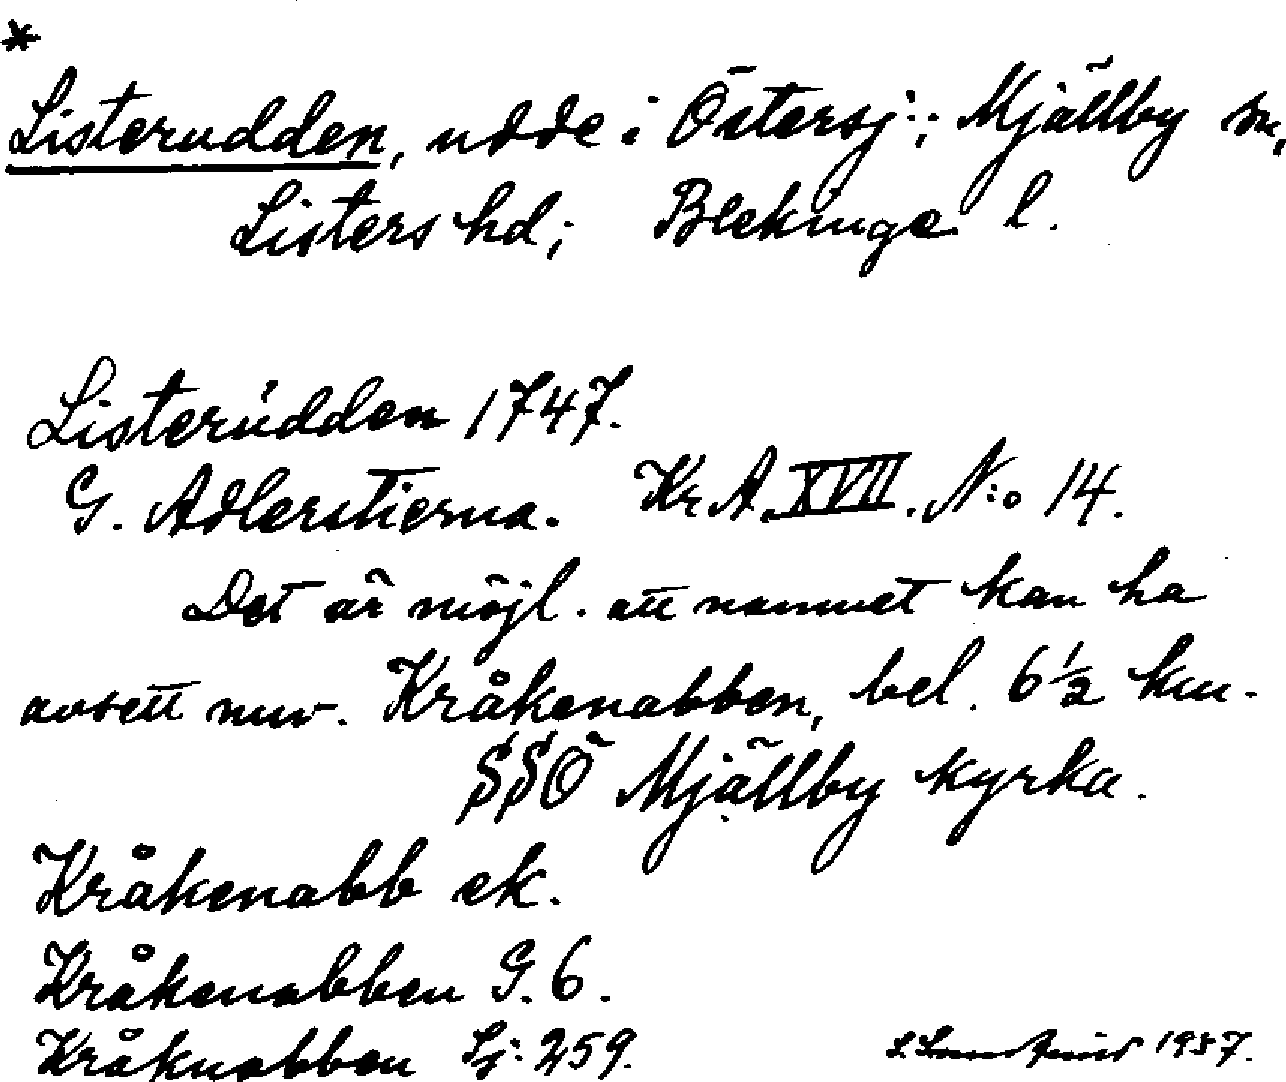 *
Listerudden, udde i Östersj:; Mjällby sn,
Listers hd; Blekinge l.
Listerudden 1747.
G. Adlerstierna. Kr.A. XVII. N:o 14.
Det är möjl. att namnet kan ha
avsett nuv. Kråkenabben, bel. 6½ km.
SSÖ Mjällby kyrka.
Kråkenabb ek.
Kråkenabben G. 6.
Kråknabben Sj: 259.
1957.